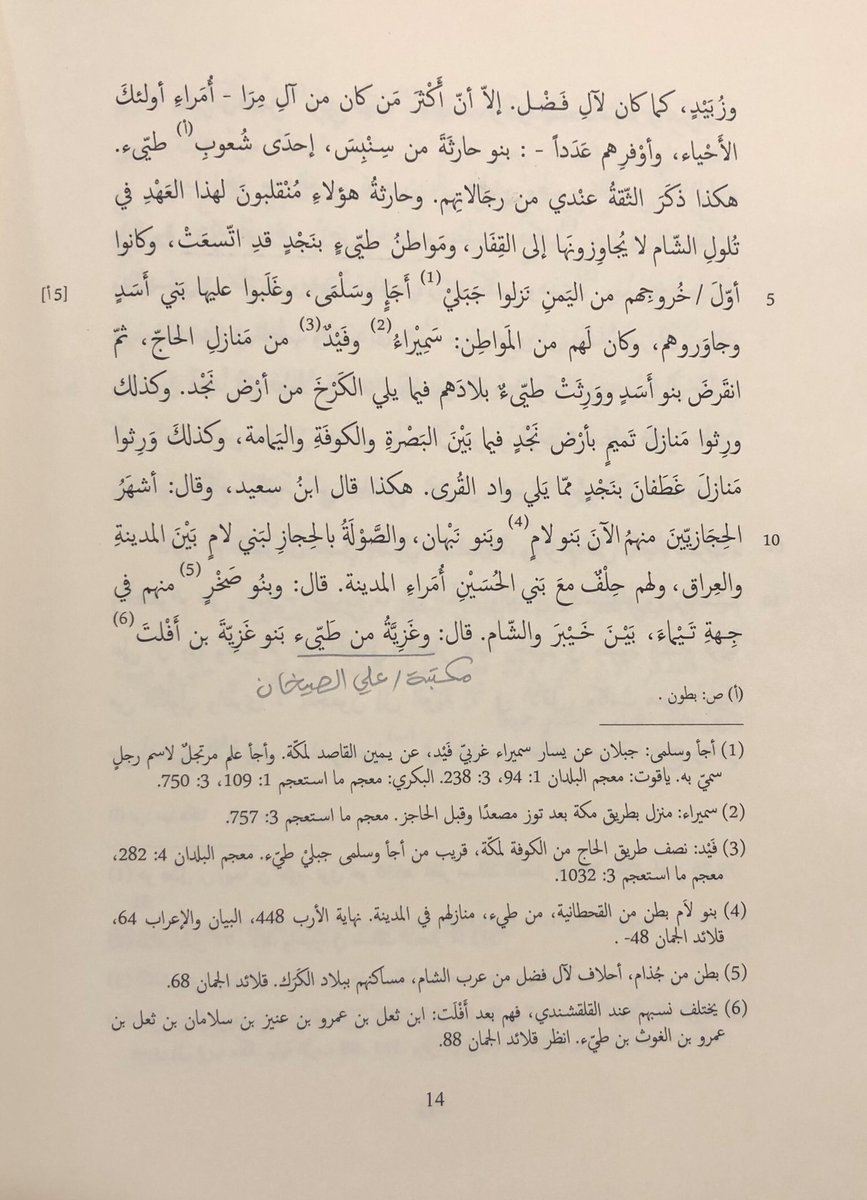 وزُبَيْدٍ، كما كان لآلِ فَضْل. إلاّ أنّ أَكْثرَ مَن كان من آلِ مِرَا - أُمَراءِ أولئكَ
الأَحْياء، وأوْفرِهم عَدَداً - : بنو حارثَةَ من سِنْبِسَ، إحدَى شُعوبِ(أ) طيّىء.
هكذا ذكَرَ الثّقةُ عنْدي من رجَالاتِهم. وحارثةُ هؤلاءِ مُنْقلبونَ لهذا العَهْدِ في
تُلولِ الشّام لا يُجاوِزونَها إلى القِفَار، ومَواطنُ طيّىءٍ بنَجْدٍ قدِ اتّسعَتْ، وكانوا
[5أ] أوّلَ / خُروجِهم من اليَمنِ نَزلوا جَبَليْ(1) أَجَإٍ وسَلْمَى، وغَلَبوا عليها بَني أَسَدٍ 5
وجاوَروهم، وكان لَهم من المَواطِن: سَمِيْراءُ(2) وفَيْدٌ(3) من مَنازلِ الحَاجّ، ثمّ
انقَرضَ بنو أَسَدٍ ووَرِثَتْ طيّىءٌ بلادَهم فيما يلي الكَرْخَ من أرْض نَجْد. وكذلك
ورِثوا مَنازلَ تَميمٍ بأرْض نَجْدٍ فيما بَيْنَ البَصْرةِ والكوفَةِ واليَمامة، وكذلكَ وَرِثوا
مَنازلَ غَطَفانَ بنَجْدٍ ممّا يَلي واد القُرى. هكذا قال ابنُ سعيد، وقال: أشهَرُ
الحِجَازيّينَ منهمُ الآنَ بَنو لامٍ(4) وبَنو نَبْهان، والصَّوْلَةُ بالحِجازِ لبَني لامٍ بَيْنَ المدينةِ 10
والعِراق، ولهم حِلْفٌ معَ بَني الحُسَيْنِ أُمَراءِ المدينة. قال: وبنُو صَخْرٍ(5) منهم في
جِهةِ تَيْماءَ، بَيْنَ خَيْبرَ والشّام. قال: وغَزِيَّةُ من طَيّىء بَنو غَزِيّةَ بن أَفْلتَ(6)
مكتبة / علي الصيخان
(أ) ص: بطون .
(1) أجأ وسلمى: جبلان عن يسار سميراء غربيّ فَيْد، عن يمين القاصد لمكّة. وأجأ علم مرتجلٌ لاسم رجلٍ
سميّ به. ياقوت: معجم البلدان 1: 94، 3: 238. البكري: معجم ما استعجم 1: 109، 3: 750.
(2) سميراء: منزل بطريق مكة بعد توز مصعدًا وقبل الحاجز. معجم ما استعجم 3: 757.
(3) فَيْد: نصف طريق الحاج من الكوفة لمكّة، قريب من أجأ وسلمى جبليْ طيّء. معجم البلدان 4: 282،
معجم ما استعجم 3: 1032.
(4) بنو لأم بطن من القحطانية، من طيء، منازلهم في المدينة. نهاية الأرب 448، البيان والإعراب 64،
قلائد الجمان 48- .
(5) بطن من جُذام، أحلاف لآل فضل من عرب الشام، مساكنهم ببلاد الكَرَك. قلائد الجمان 68.
(6) يختلف نسبهم عند القلقشندي، فهم بعد أَفْلَت: ابن ثعل بن عمرو بن عنيز بن سلامان بن ثعل بن
عمرو بن الغوث بن طيّء. انظر قلائد الجمان 88.
14